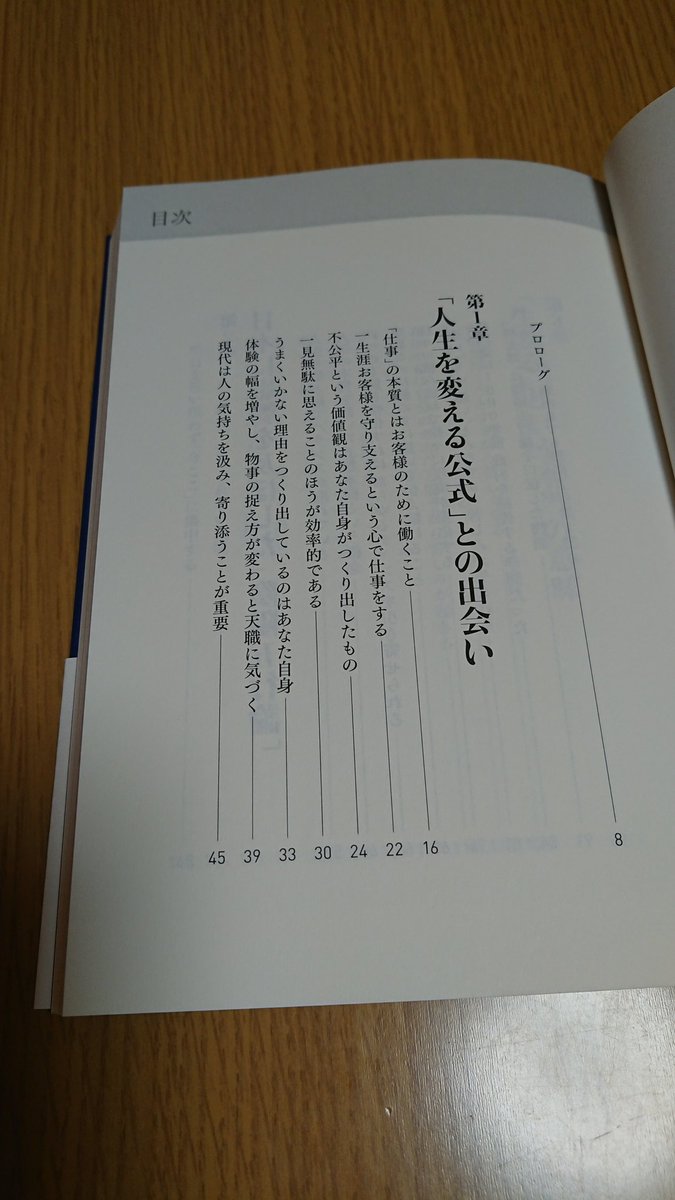 目次
プロローグ 8
第1章
「人生を変える公式」との出会い
「仕事」の本質とはお客様のために働くこと 16
一生涯お客様を守り支えるという心で仕事をする 22
不公平という価値観はあなた自身がつくり出したもの 24
一見無駄に思えることのほうが効率的である 30
うまくいかない理由をつくり出しているのはあなた自身 33
体験の幅を増やし、物事の捉え方が変わると天職に気づく 39
現代は人の気持ちを汲み、寄り添うことが重要 45